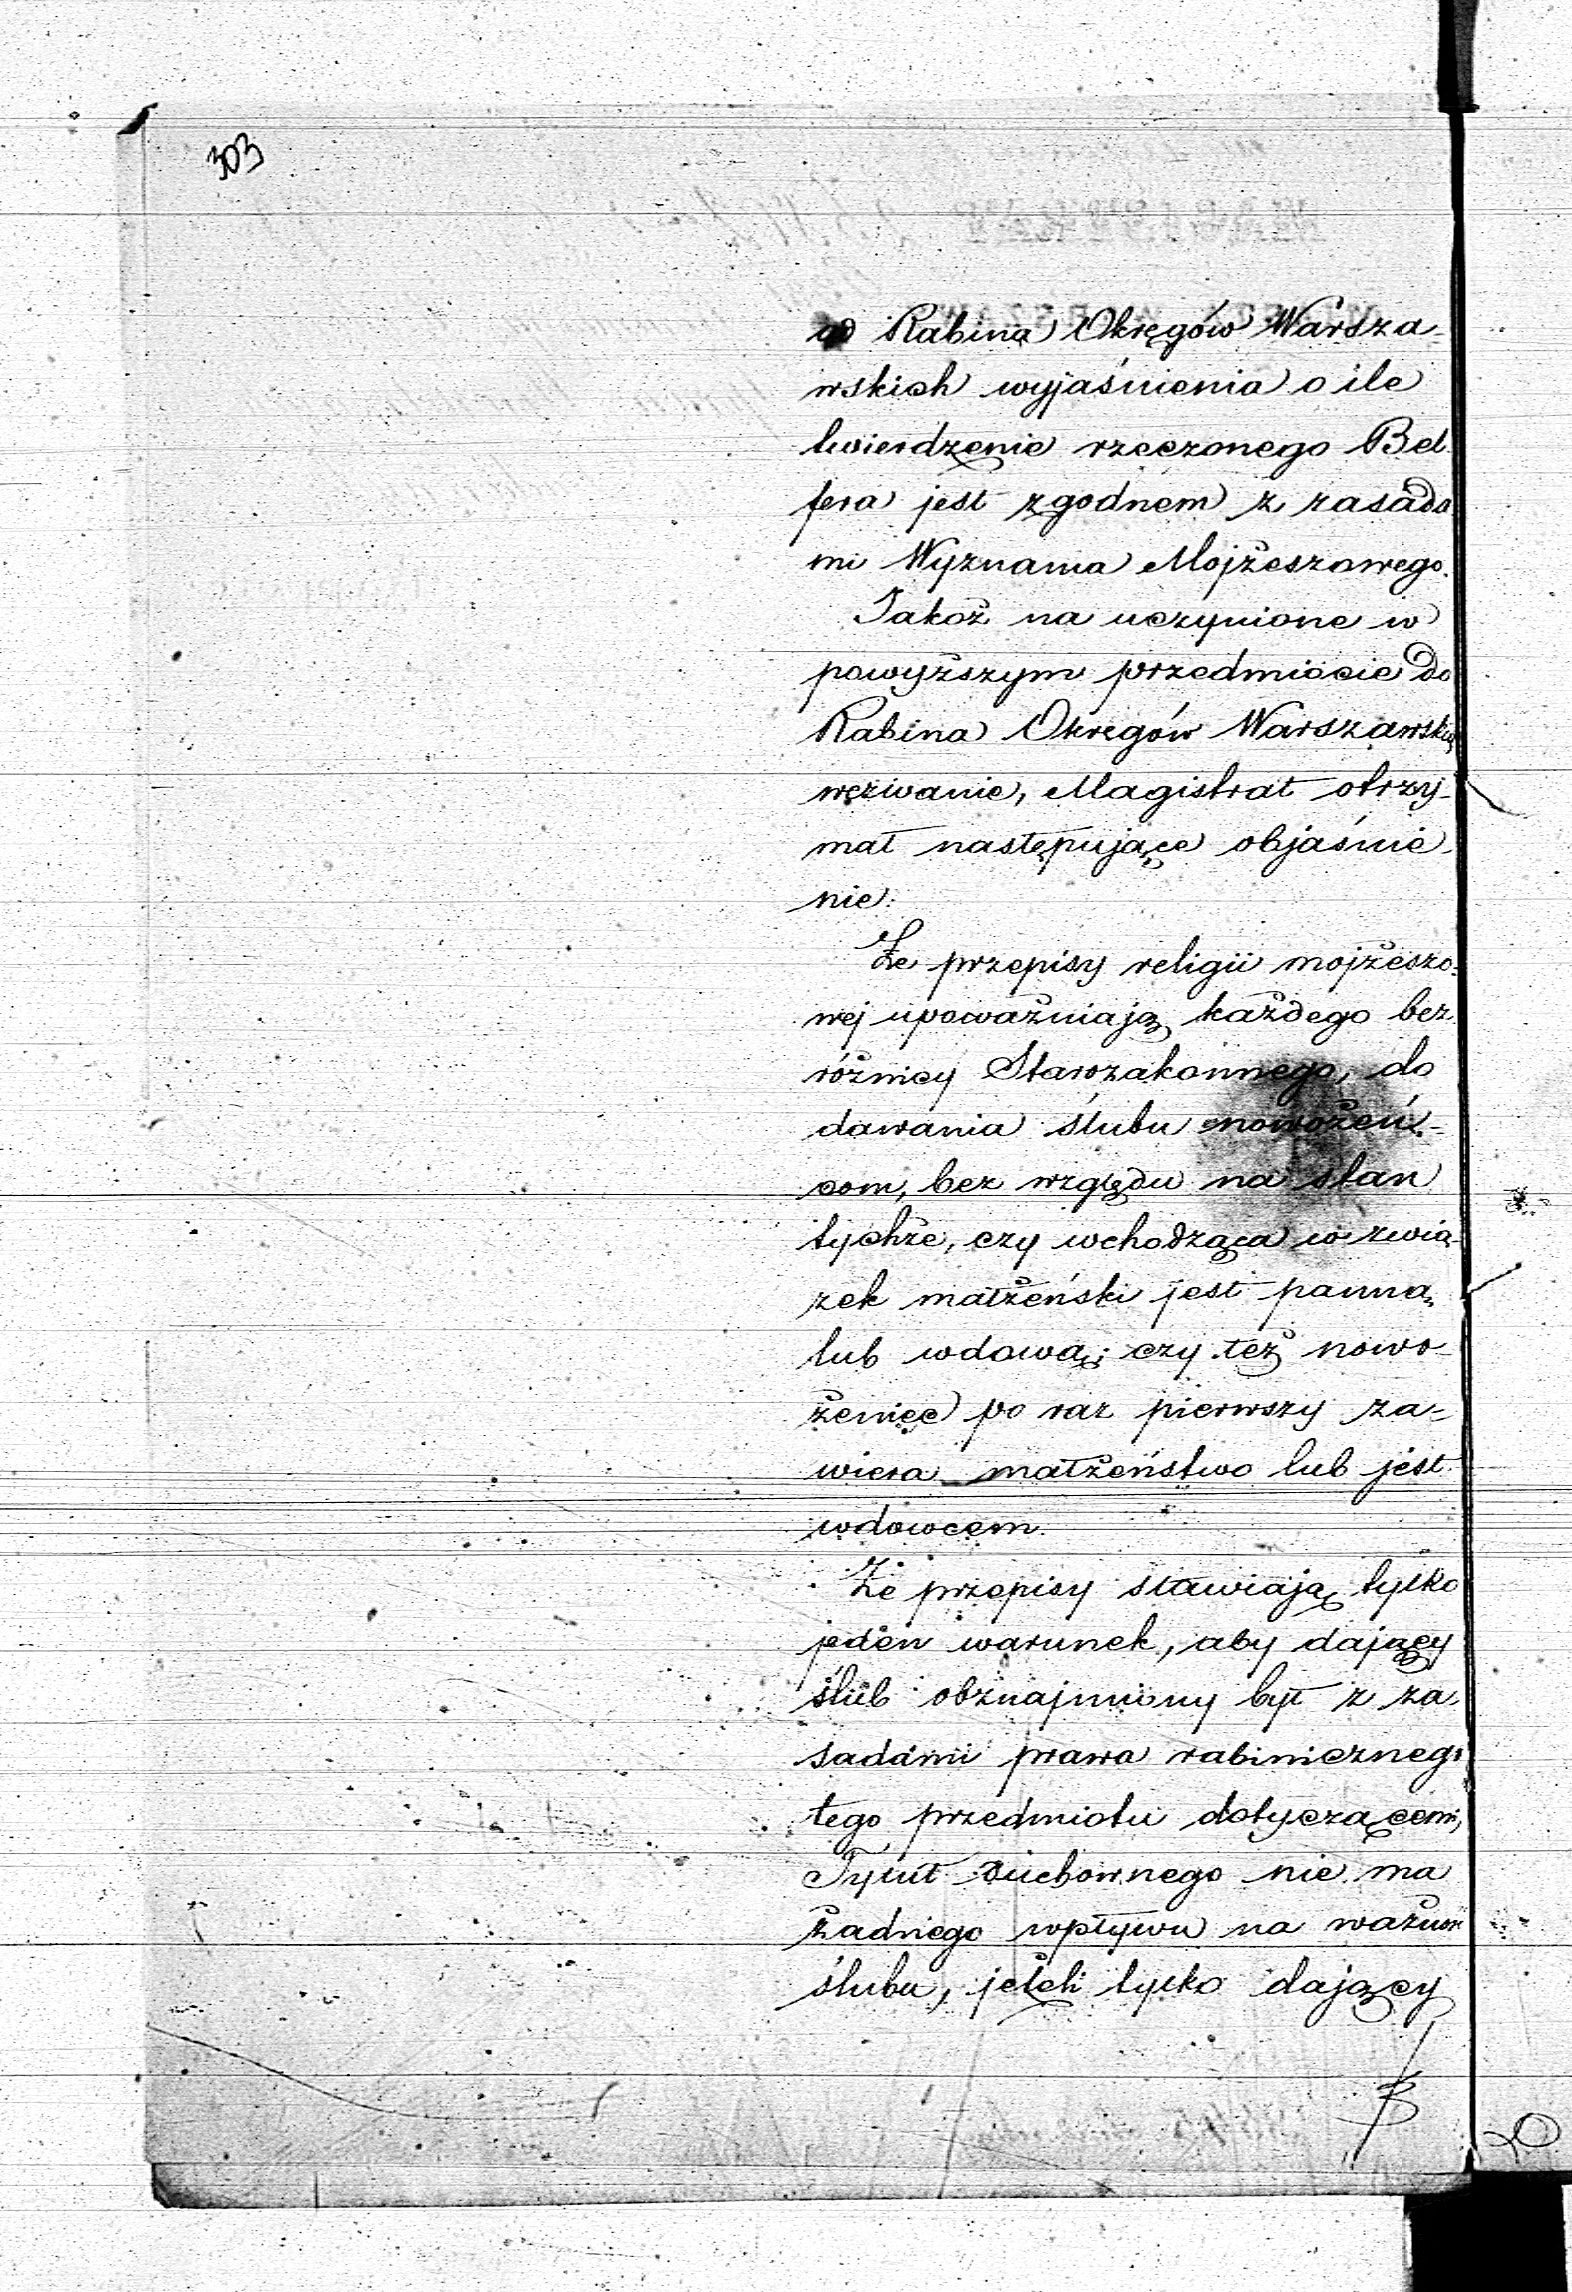 303
od Rabina Okręgów Warsza-
wskich wyjaśnienia o ile
twierdzenie rzeczonego Bel-
fera jest zgodnem z zasada
mi Wyznania Mojżeszowego.
Jakoż na uczynione w
powyższym przedmiocie do
Rabina Okręgów Warszawskich
wezwanie, Magistrat otrzy-
mał następujące objaśnie-
nie:
Że przepisy religii mojżeszo-
wej upoważniają każdego bez
różnicy Starozakonnego, do
dawania ślubu nowożeń-
com, bez względu na stan
tychże, czy wchodząca w zwią-
zek małżeński jest panną
lub wdową; czy też nowo-
żeniec po raz pierwszy za-
wiera małżeństwo lub jest
wdowcem.
Że przepisy stawiają tylko
jeden warunek, aby dający
ślub obznajmiony był z za-
sadami prawa rabinicznego
tego przedmiotu dotyczącemi,
Tytuł duchownego nie ma
żadnego wpływu na ważność
ślubu, jeżeli tylko dający